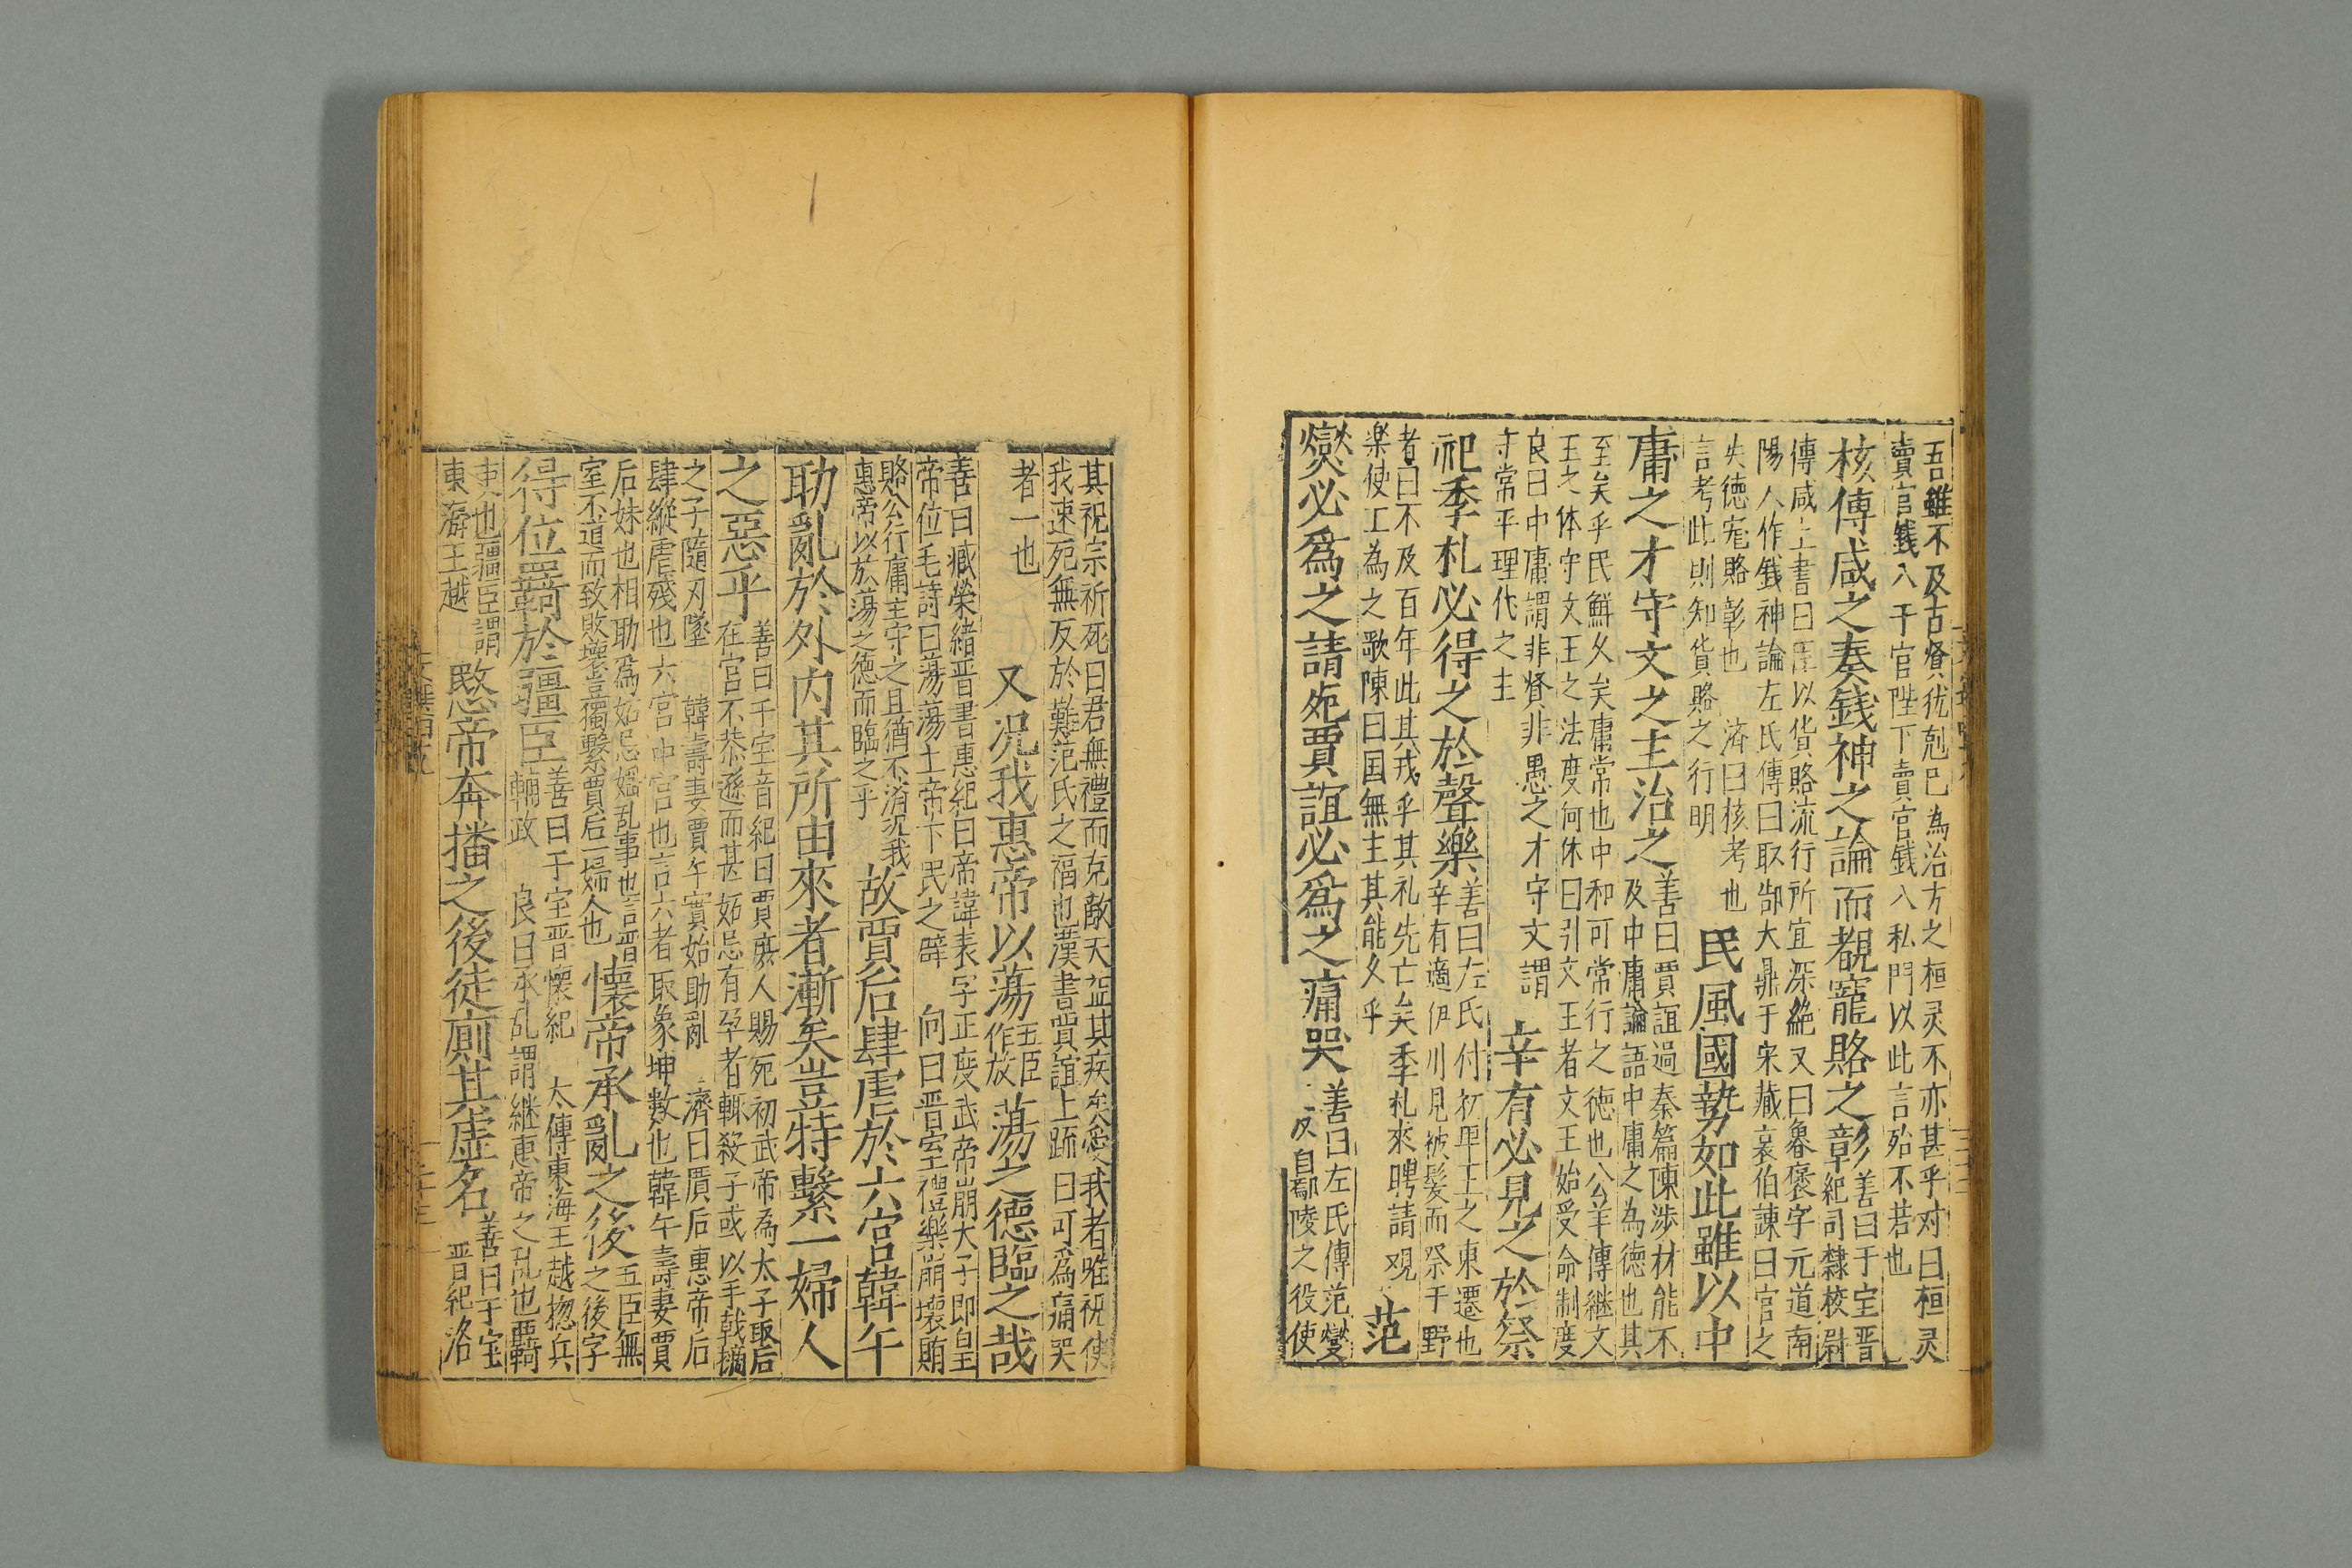 吾雖不及古賢犹尅巳為治方之桓灵不亦甚乎对曰桓灵
賣官錢入于官陛下賣官錢入私門以此言殆不若也
核傅咸之奏錢神之論而覩寵賂之彰
善曰于宝晋
紀司隸校尉
傅咸上書曰臣以貨賂流行所宜深絶又曰魯褒字元道南
陽人作錢神論左氏傳曰取郜大鼎于宋臧哀伯諫曰官之
失徳寵賂彰也　濟曰核考也
言考此則知貨賂之行明
民風國勢如此雖以中
庸之才守文之主治之
善曰賈誼過秦篇陳涉材能不
及中庸論語中庸之為徳也其
至矣乎民鮮久矣庸常也中和可常行之徳也公羊傳継文
王之体守文王之法度何休曰引文王者文王始受命制度
良曰中庸謂非賢非愚之才守文謂
守常平理代之主
辛有必見之於祭
祀季札必得之於聲樂
善曰左氏付初平王之東遷也
辛有適伊川見被髪而祭于野
者曰不及百年此其戎乎其礼先亡矣季札來聘請观
楽使工為之歌陳曰国無主其能久乎
范
燮必爲之請死賈誼必爲之痛哭
善曰左氏傳范燮
反自鄢陵之役使
其祝宗祈死曰君無禮而克敵天益其疾矣愛我者唯祝使
我速死無及於難范氏之福也漢書賈誼上疏曰可爲痛哭
者一也
又况我惠帝以蕩
五臣
作放
蕩之徳臨之哉
善曰臧榮緒晋書惠紀曰帝諱衷字正度武帝崩太子即皇
帝位毛詩曰蕩蕩上帝下民之辟　向曰晋室禮樂崩壞賄
賂公行庸主守之且猶不済况我
惠帝以於蕩之徳而臨之乎
故賈后肆虐於六宮韓午
助亂於外内其所由來者漸矣豈特繫一婦人
之惡乎
善曰干宝晋紀曰賈庶人賜死初武帝為太子取后
在官不恭遜而甚妬忌有孕者輒殺子或以手戟擿
之子隨刃墜　韓壽妻賈午實始助亂　濟曰賈后惠帝后
肆縱虐殘也六宮中宮也言六者取象坤数也韓午壽妻賈
后妹也相助爲妬忌婬乱事也言晋
室不道而致敗壞豈獨繫賈后一婦人也
懷帝承亂之後
五臣無
之後字
得位羇於彊臣
善曰于宝晋懷紀　太傅東海王越揔兵
輔政　良曰承乱謂継惠帝之乱也羇
寄也彊臣謂
東海王越
愍帝奔播之後徒厠其虚名
善曰于宝
晋紀洛